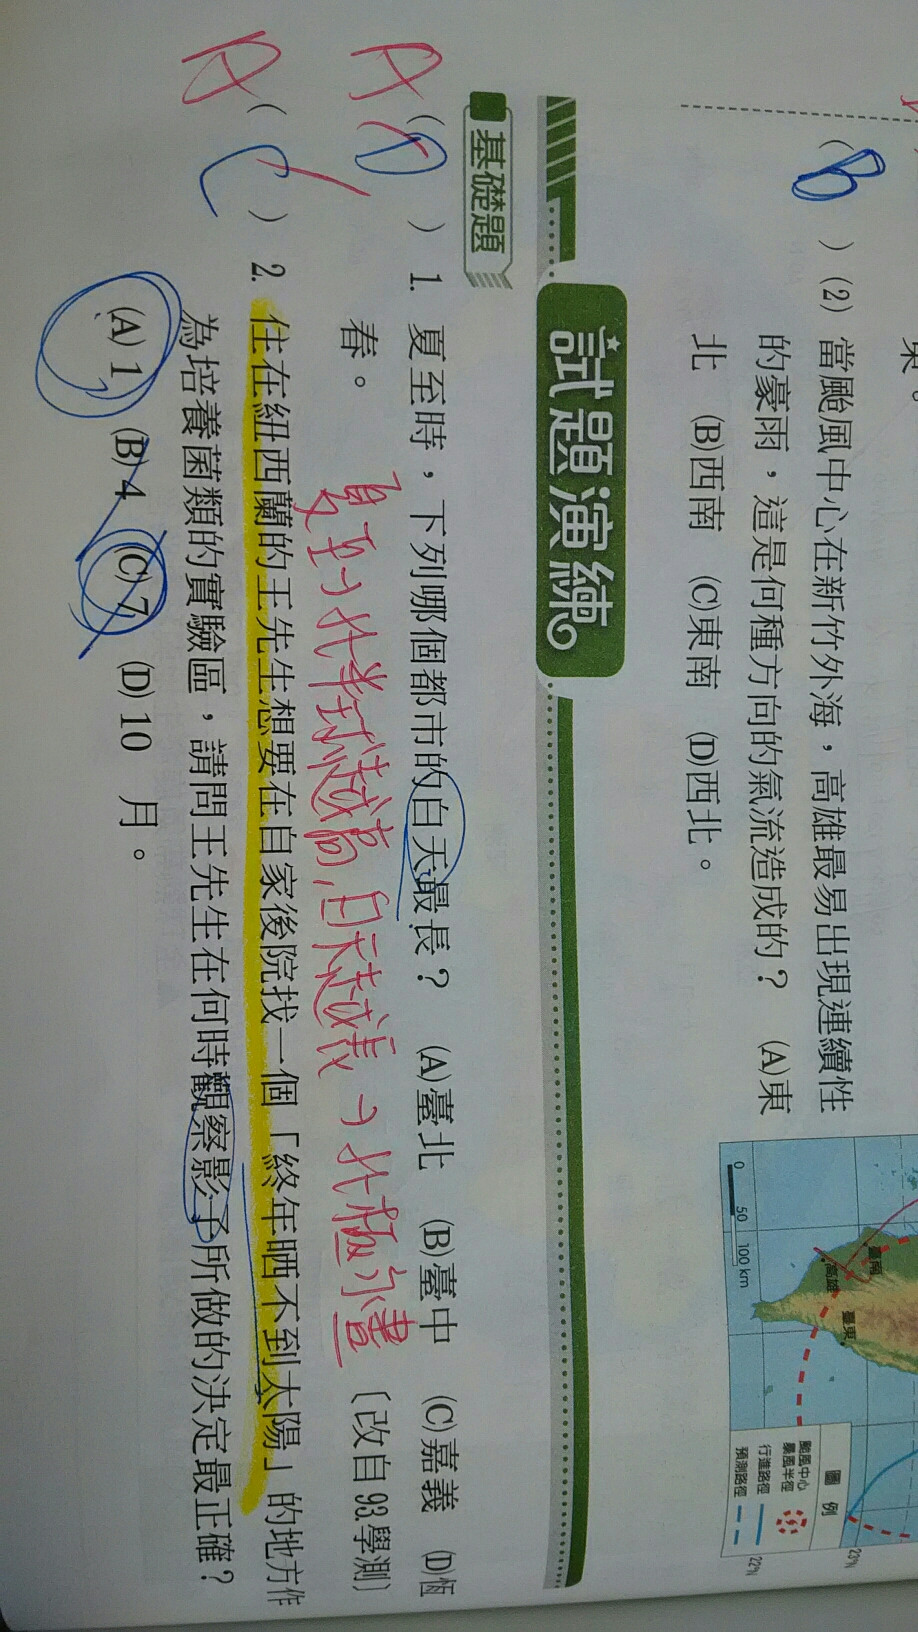 東。
B
( )(2) 當颱風中心在新竹外海，高雄最易出現連續性
的豪雨，這是何種方向的氣流造成的？ (A)東
北 (B)西南 (C)東南 (D)西北。
臺南
高雄
臺東
0 50 100 km
圖例
颱風中心
暴風半徑
行進路徑
預測路徑
23°N
22°N
試題演練
基礎題
A
D
( ) 1. 夏至時，下列哪個都市的白天最長？ (A)臺北 (B)臺中 (C)嘉義 (D)恆
春。
〔改自93.學測〕
夏至→北半球越高，白天越長→北極永晝
A
C
( ) 2. 住在紐西蘭的王先生想要在自家後院找一個「終年晒不到太陽」的地方作
為培養菌類的實驗區，請問王先生在何時觀察影子所做的決定最正確？
(A) 1 (B) 4 (C) 7 (D) 10 月。